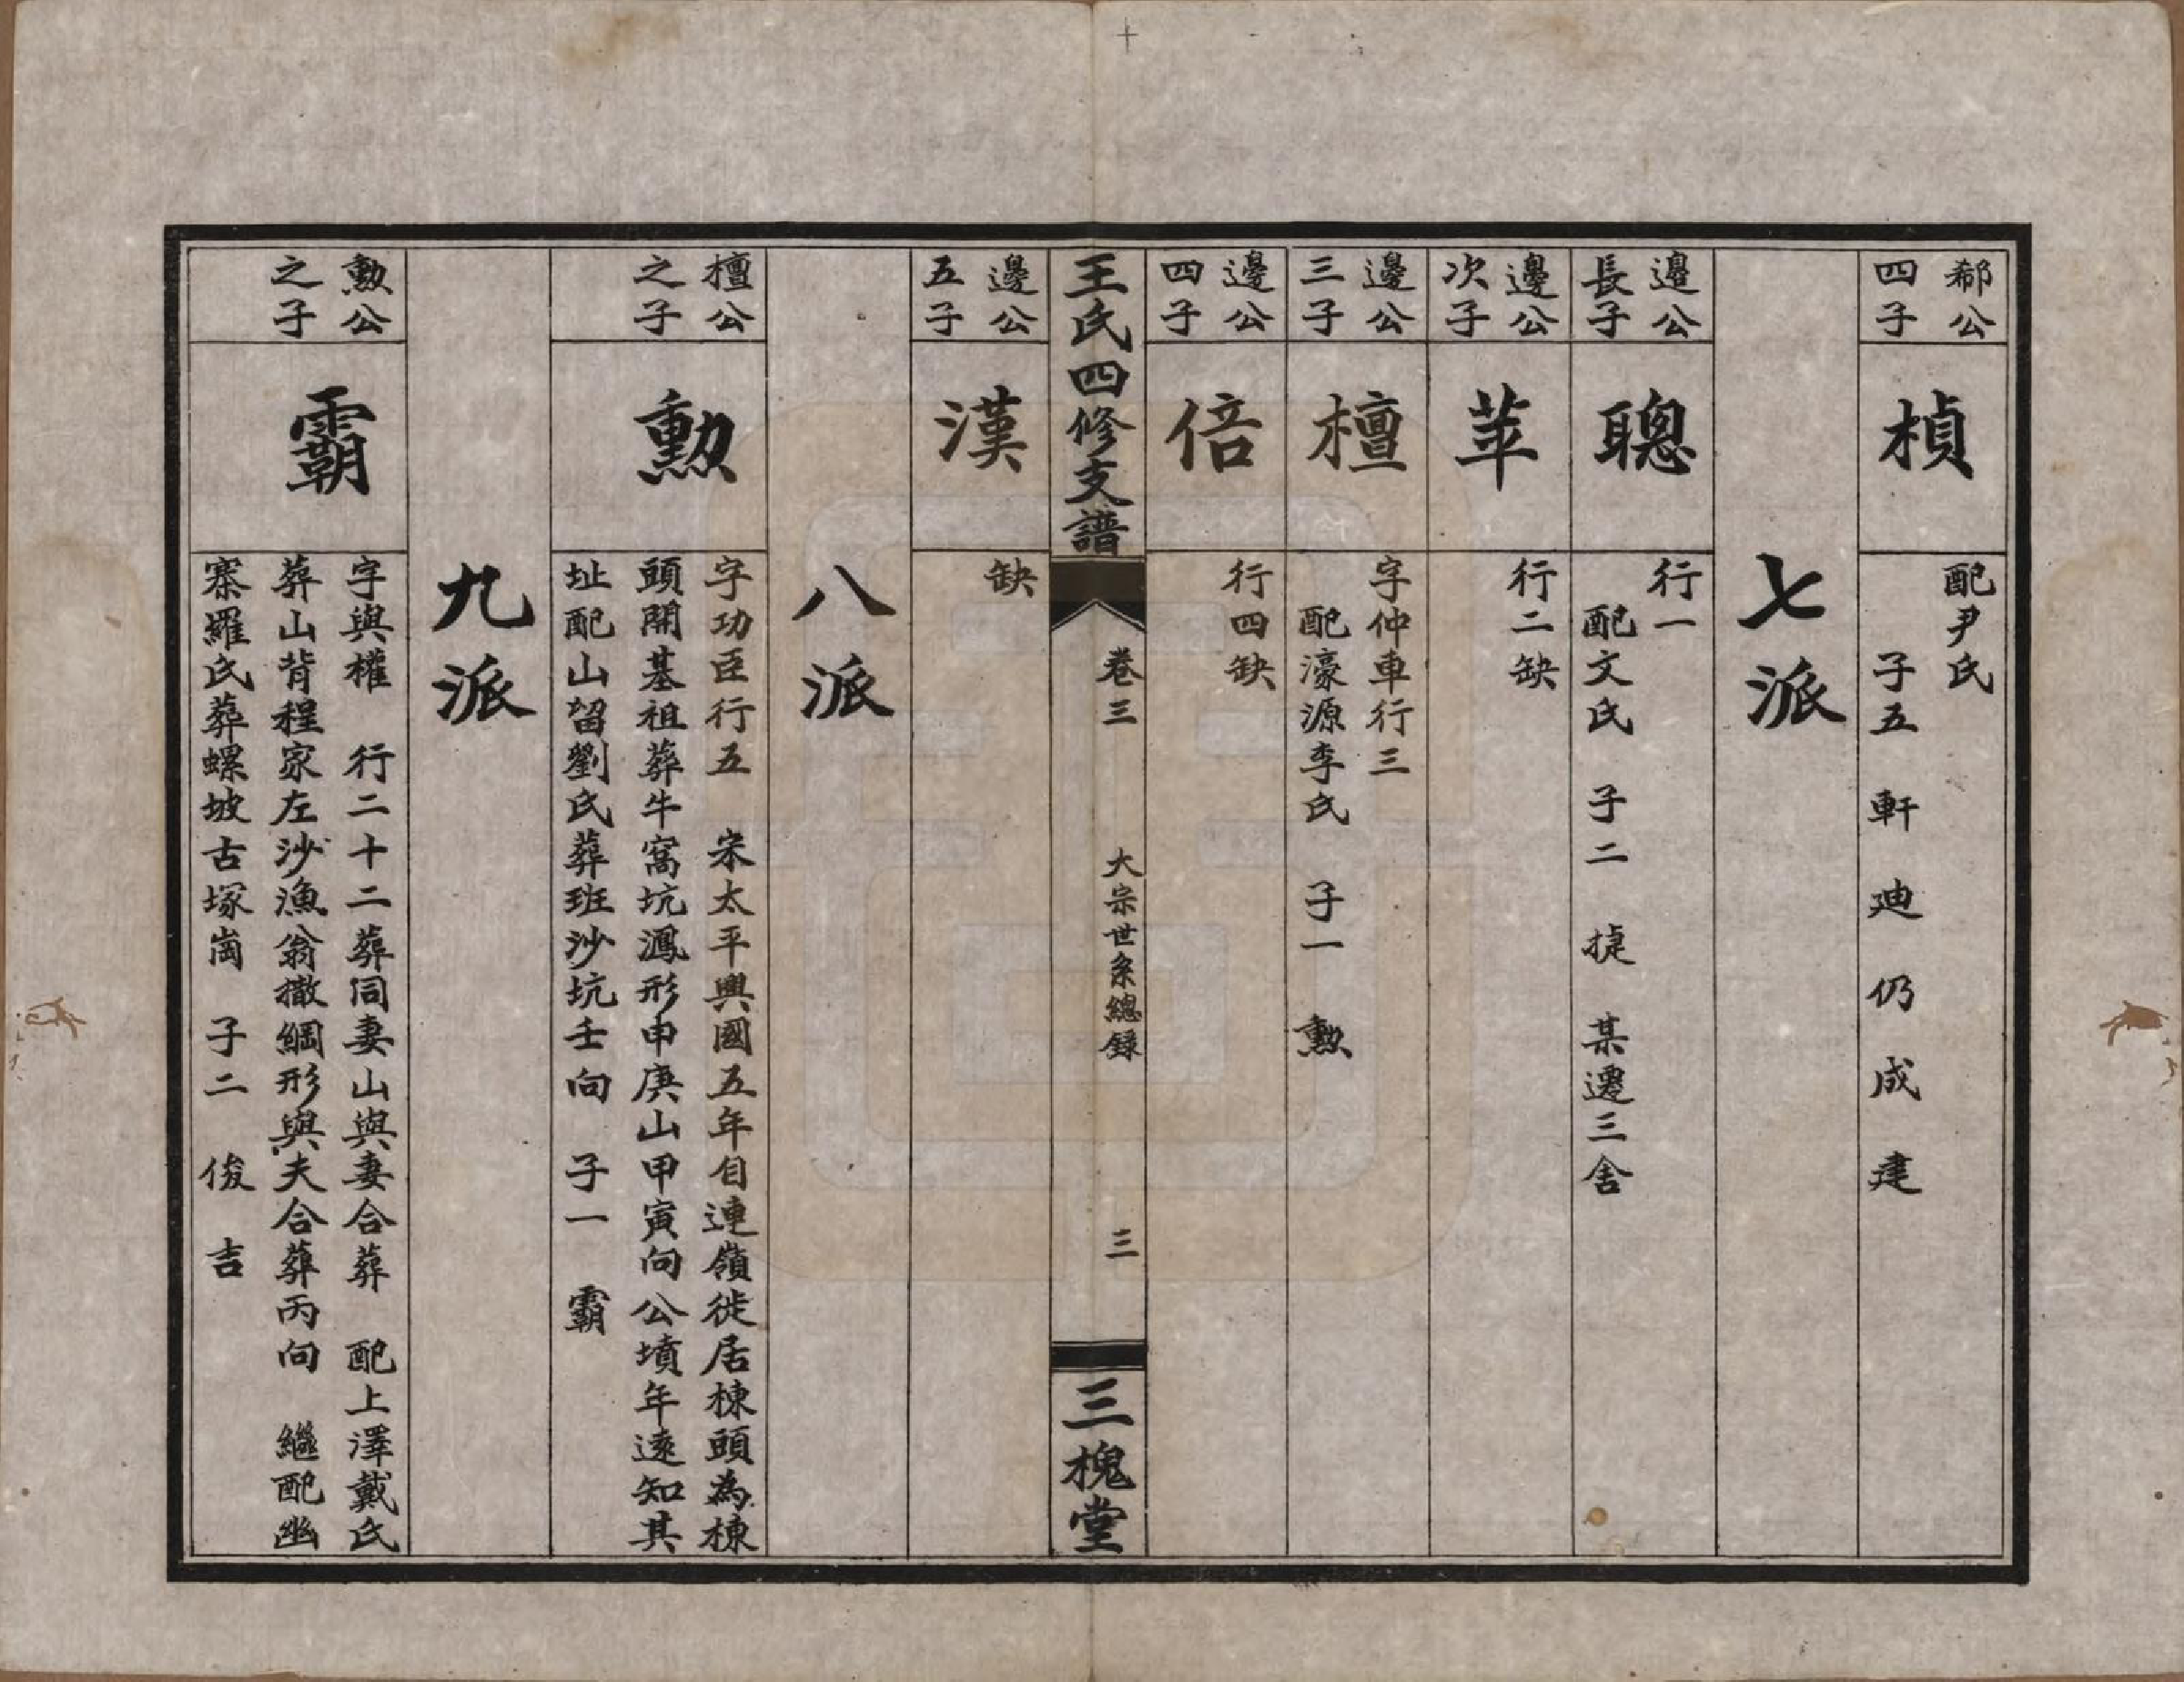 郗公
四子
楨
配尹氏
子五　軒　迪　仍　成　建
七派
邉公
長子
聰
行一
配文氏　子二　捷　某遷三舍
邊公
次子
苹
行二缺
邊公
三子
檀
字仲車行三
配濠源李氏　子一　勲
邊公
四子
倍
行四缺
王氏四修支譜
卷三
大宗世系總録
三
三槐堂
邊公
五子
漢
缺
八派
檀公
之子
勲
字功臣行五　宋太平興國五年自連嶺徙居棟頭為棟
頭開基祖葬牛窩坑鳳形申庚山甲寅向公墳年遠知其
址配山畱劉氏葬班沙坑壬向　子一　霸
九派
勲公
之子
霸
字與權　行二十二葬同妻山與妻合葬　配上澤戴氏
葬山背程家左沙漁翁撒網形與夫合葬丙向　繼配幽
寨羅氏葬螺坡古塚崗　子二　俊　吉